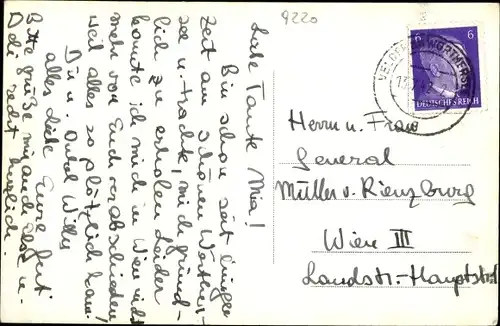 9220
Liebe Tante Mia!
Bin schon seit einiger
Zeit am schönen Werther-
see u. trachte, mich gründ-
lich zu erholen. Leider
konnte ich mich in Wien nicht
mehr von Euch verabschieden
weil alles so plötzlich kam.
Du u. Onkel Willy
alles Liebe Eure
Bitte grüße mir auch
Dedi recht herzlich.
6 6
VELDEN AM WÖRTHERSEE
DEUTSCHES REICH
Herrn u. Frau
General
Müller v. Rienzburg
Wien III
Landstr.-Hauptstr.